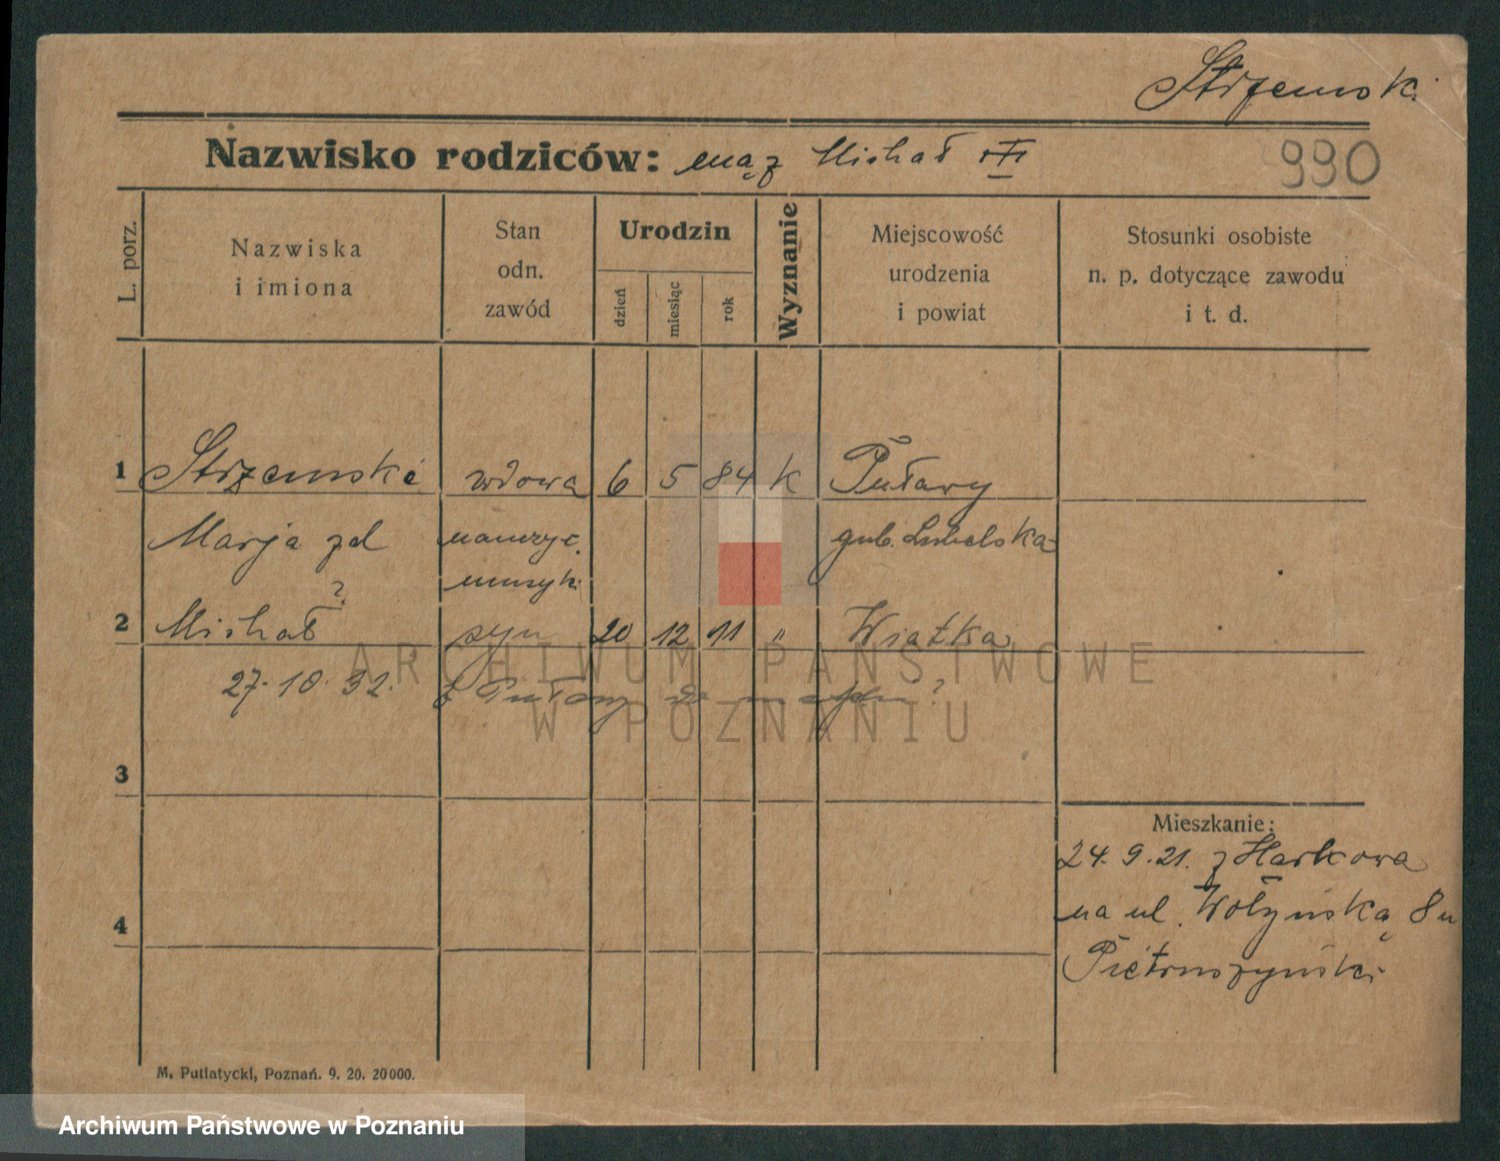 Strzemski
Nazwisko rodziców: mąż Michał
990
L. porz.
Nazwiska i imiona
Stan odn. zawód
Urodzin
dzień
miesiąc
rok
Wyznanie
Miejscowość urodzenia i powiat
Stosunki osobiste n. p. dotyczące zawodu i t. d.
1 Strzemski wdowa 6 5 84 k Puławy
Marja zd nauczyc. gub. Lubelska
? muzyk.
2 Michał syn 20 12 11 " Wiatka
27.10.32. z Puławy
3
4
Mieszkanie:
24.9.21. z Harkowa
na ul. Wołyńską 8 u
Pietruszyński
M. Putiatycki, Poznań. 9. 20. 20000.
ARCHIWUM PAŃSTWOWE
W POZNANIU
Archiwum Państwowe w Poznaniu